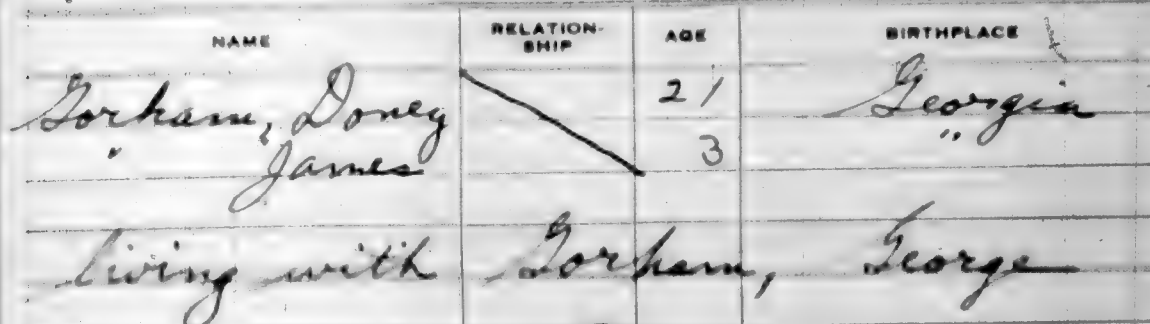 NAME RELATION-SHIP AGE BIRTHPLACE
Gorham, Doney 21 Georgia
" James 3 "
living with Gorham, George